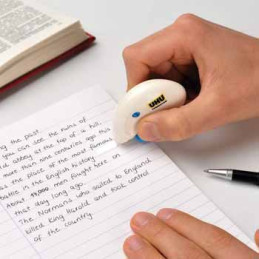 ing the past.
you can see the ruins of
d abbey at the top of a hill
e than nine centuries ago this
as the place of the most famous
battle in the English history.
About 14,000 men fought here on
that day long ago.
The Normans who sailed to England
killed King Harold and took control
of the country.
UHU